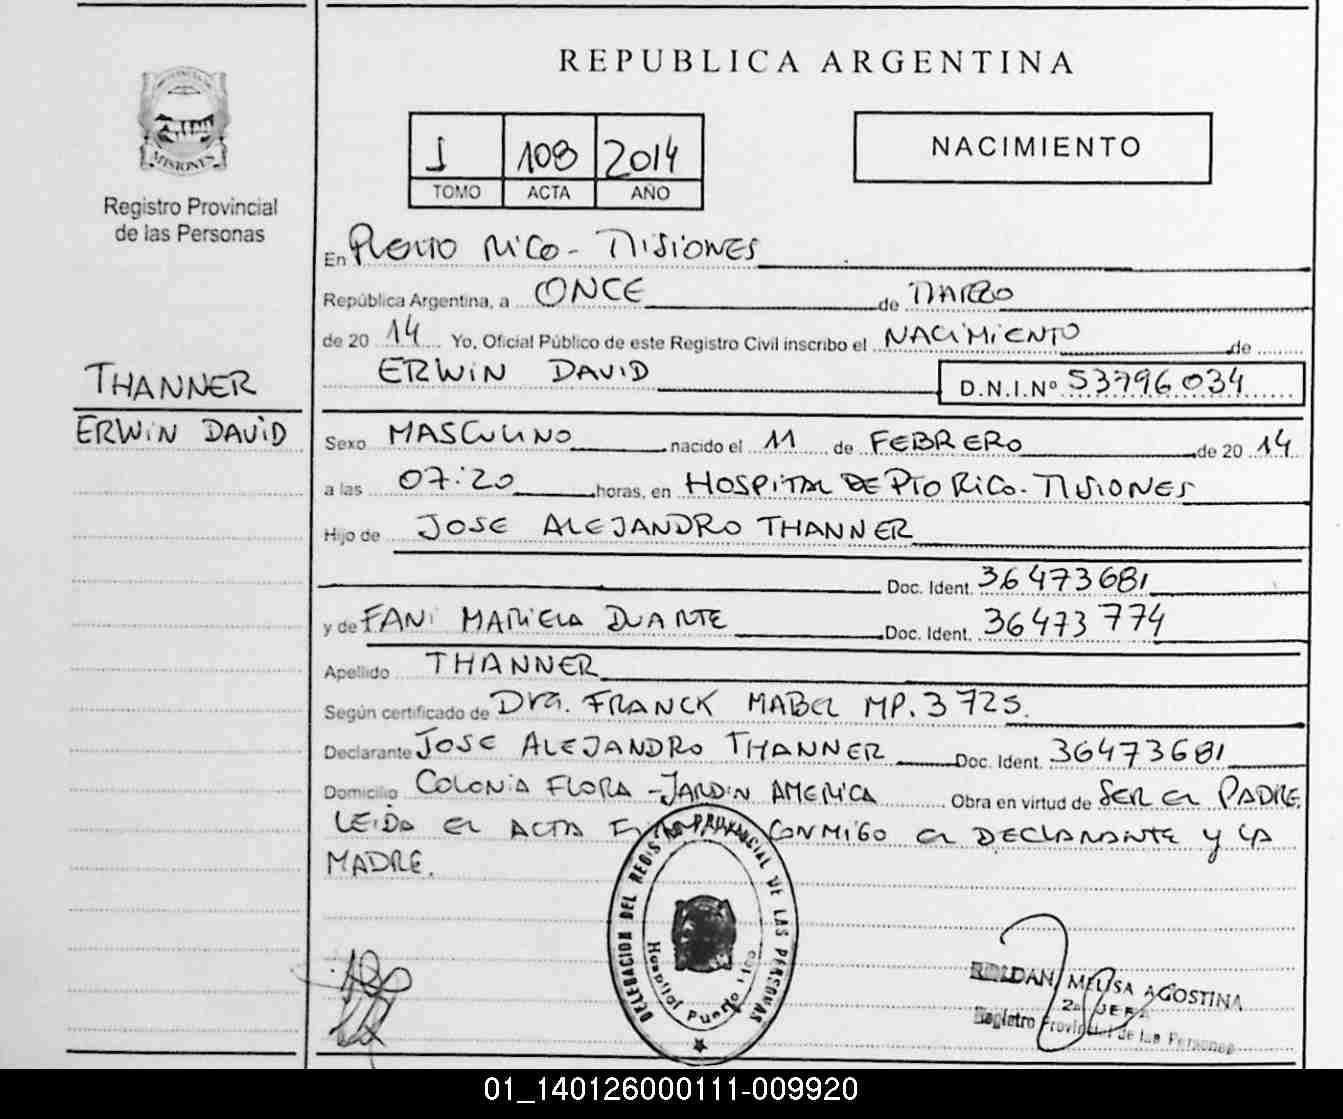 REPUBLICA ARGENTINA
MISIONES
Registro Provincial
de las Personas
1 108 2014
TOMO ACTA AÑO
NACIMIENTO
En Puerto Rico - Misiones
República Argentina, a ONCE de MARZO
de 20 14 Yo, Oficial Público de este Registro Civil inscribo el NACIMIENTO de
ERWIN DAVID D.N.I.Nº 53796034
THANNER
ERWIN DAVID
Sexo MASCULINO nacido el 11 de FEBRERO de 20 14
a las 07:20 horas, en HOSPITAL DE PTO RICO - MISIONES
Hijo de JOSE ALEJANDRO THANNER
Doc. Ident. 36473681
y de FANI MARIELA DUARTE Doc. Ident. 36473774
Apellido THANNER
Según certificado de DRA. FRANCK MABEL MP. 3725.
Declarante JOSE ALEJANDRO THANNER Doc. Ident. 36473681
Domicilio COLONIA FLORA - JARDIN AMERICA Obra en virtud de SER EL PADRE.
LEIDO EL ACTA CONMIGO EL DECLARANTE Y LA
MADRE.
DELEGACION DEL REGISTRO PROVINCIAL DE LAS PERSONAS
Hospital Puerto Rico
ROLDAN MELISA AGOSTINA
2a JEFA
Registro Provincial de las Personas
01_140126000111-009920